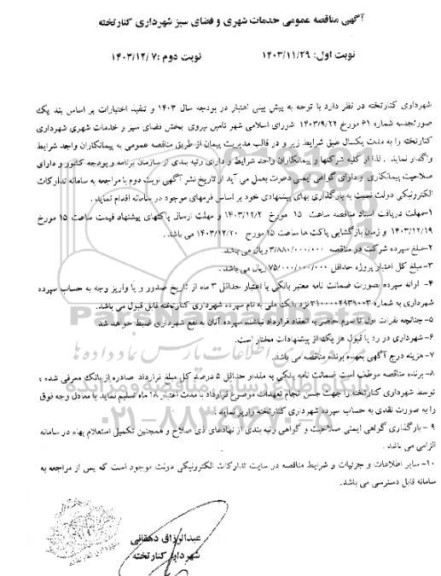 آگهی مناقصه عمومی خدمات شهری و فضای سبز شهرداری کنارتخته
نوبت اول: ۱۴۰۳/۱۱/۲۹ نوبت دوم: ۱۴۰۳/۱۲/۷
شهرداری کنارتخته در نظر دارد با توجه به پیش بینی اعتبار در بودجه سال ۱۴۰۳ و تنفیذ اختیارات بر اساس بند یک
صورتجلسه شماره ۶۱ مورخ ۱۴۰۳/۹/۲۴ شورای اسلامی شهر تامین نیروی بخش فضای سبز و خدمات شهری شهرداری
کنارتخته را به مدت یکسال طبق شرایط زیر و در قالب مدیریت پیمان از طریق مناقصه عمومی به پیمانکاران واجد شرایط
واگذار نمایند. لذا از کلیه شرکتها و پیمانکاران واجد شرایط و دارای رتبه بندی از سازمان برنامه و بودجه کشور و دارای
صلاحیت پیمانکاری و دارای گواهی ایمنی دعوت بعمل می آید از تاریخ نشر آگهی نوبت دوم با مراجعه به سامانه تدارکات
الکترونیکی دولت نسبت به بارگذاری بهای پیشنهادی خود بر اساس فرمهای موجود در سامانه اقدام نمایند.
۱-مهلت دریافت اسناد مناقصه ساعت ۱۵ مورخ ۱۴۰۳/۱۲/۲ و مهلت ارسال پاکتهای پیشنهاد قیمت ساعت ۱۵ مورخ
۱۴۰۳/۱۲/۱۹ و زمان بازگشایی پاکت ها ساعت ۱۵ مورخ ۱۴۰۳/۱۲/۲۰ می باشد.
۲-مبلغ سپرده شرکت در مناقصه ۳/۸۸۰/۰۰۰/۰۰۰ ریال می باشد.
۳-مبلغ کل اعتبار پروژه حداقل ۷۵/۰۰۰/۰۰۰/۰۰۰ ریال می باشد.
۴- ارائه سپرده بصورت ضمانت نامه معتبر بانکی با اعتبار حداقل ۳ ماه از تاریخ صدور و یا واریز وجه به حساب سپرده
شهرداری به شماره نزد بانک ملی به نام سپرده شهرداری کنارتخته قابل قبول می باشد.
۵-چنانچه نفرات اول تا سوم حاضر به انعقاد قرارداد نباشند، سپرده آنان به نفع شهرداری ضبط خواهد شد
۶-شهرداری در رد یا قبول هر یک از پیشنهادات مختار است.
۷-هزینه درج آگهی بعهده برنده مناقصه می باشد.
۸-برنده مناقصه موظف است ضمانت نامه بانکی به مقدار حداقل ۵ درصد کل مبلغ قرارداد صادره از بانک معرفی شده
توسط شهرداری کنارتخته را جهت حسن انجام تعهدات موضوع قرارداد با مدت اعتبار ماه تسلیم نماید یا معادل وجه فوق
را به صورت نقدی به حساب سپرده شهرداری کنارتخته واریز نماید.
۹-بارگذاری گواهی ایمنی صلاحیت و گواهی رتبه بندی از نهادهای ذی صلاح و همچنین تکمیل استعلام بهاء در سامانه
الزامی می باشد.
۱۰-سایر اطلاعات و جزئیات و شرایط مناقصه در سایت تدارکات الکترونیکی دولت موجود است که پس از مراجعه به
سامانه قابل دسترسی می باشد.
عبدالرزاق دهقانی
شهردار کنارتخته
ParsNamadData
پایگاه اطلاع رسانی مناقصه و مزایده